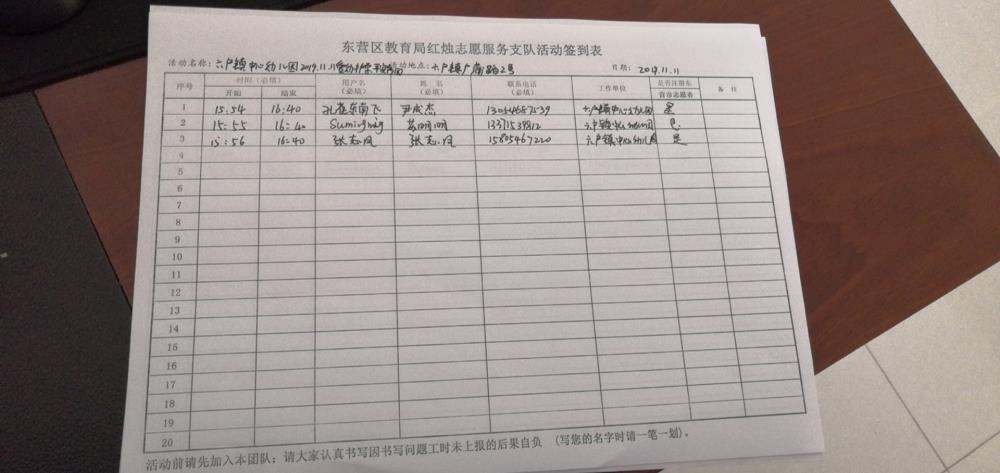 东营区教育局红烛志愿服务支队活动签到表
活动名称：六户镇中心幼儿园2019.11.11 活动地点：六户镇广南路2号 日期：2019.11.11
序号 时间（必填） 用户名（必填） 姓 名（必填） 联系电话（必填） 工作单位 是否注册东营市志愿者 备 注
开始 结束
1 15:54 16:40 孔雀东南飞 尹成杰 六户镇中心幼儿园 是
2 15:55 16:40 Sumingming 苏明明 六户镇中心幼儿园 是
3 15:56 16:40 张志凤 张志凤 15805467220 六户镇中心幼儿园 是
4
5
6
7
8
9
10
11
12
13
14
15
16
17
18
19
20
活动前请先加入本团队；请大家认真书写因书写问题工时未上报的后果自负 （写您的名字时请一笔一划）。